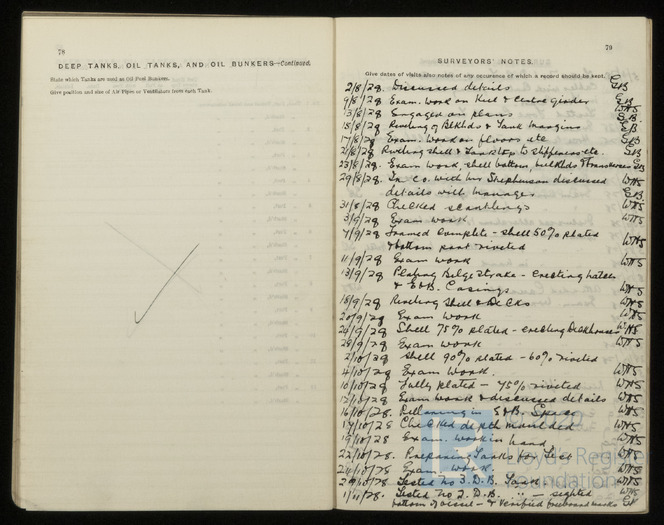 78
DEEP TANKS, OIL TANKS, AND OIL BUNKERS—Continued.
State which Tanks are used as Oil Fuel Bunkers.
Give position and size of Air Pipes or Ventilators from each Tank.
79
SURVEYORS' NOTES.
Give dates of visits also notes of any occurence of which a record should be kept.
2/8/28. Discussed details
9/8/28 Exam. work on Keel & Centre girder
13/8/28 Engaged on plans
15/8/28 Riveting of Blkhds & Tank margins
17/8/28 Exam. Work on floors etc.
Riveting shell & Tanktop to stiffeners etc.
23/8/28. Exam work, shell bottom, bulkhds & transverses
29/8/28. In Co. with Mr Stephenson discussed WHS
details with manager
31/8/28 Checked scantlings WHS
3/9/28 Exam work WHS
7/9/28 framed complete - shell 50% plated
& bottom part riveted WHS
11/9/28 Exam work WHS
13/9/28 Plating Bilge strake - erecting hatch
& E&B. Casings WHS
18/9/28 Riveting Shell & Decks WHS
20/9/28 Exam work WHS
Shell 75% plated - erecting Deckhouse WHS
28/9/28 Exam work WHS
2/10/28 Shell 90% plated - 60% riveted
4/10/28 Exam work. WHS
10/10/28 Fully plated - 75% riveted WHS
12/10/28 Exam work & discussed details WHS
16/10/28. in E&B. Space WHS
17/10/28 Checked depth moulded WHS
19/10/28 Exam. work in hand WHS
22/10/28. Preparing Tanks for Test WHS
24/10/28 Exam work WHS
Tested No 3. D.B. Tank WHS
1/11/28. Tested No 2. D.B. " - sighted WHS
bottom of vessel - & verified freeboard marks
Lloyd's Register
Foundation